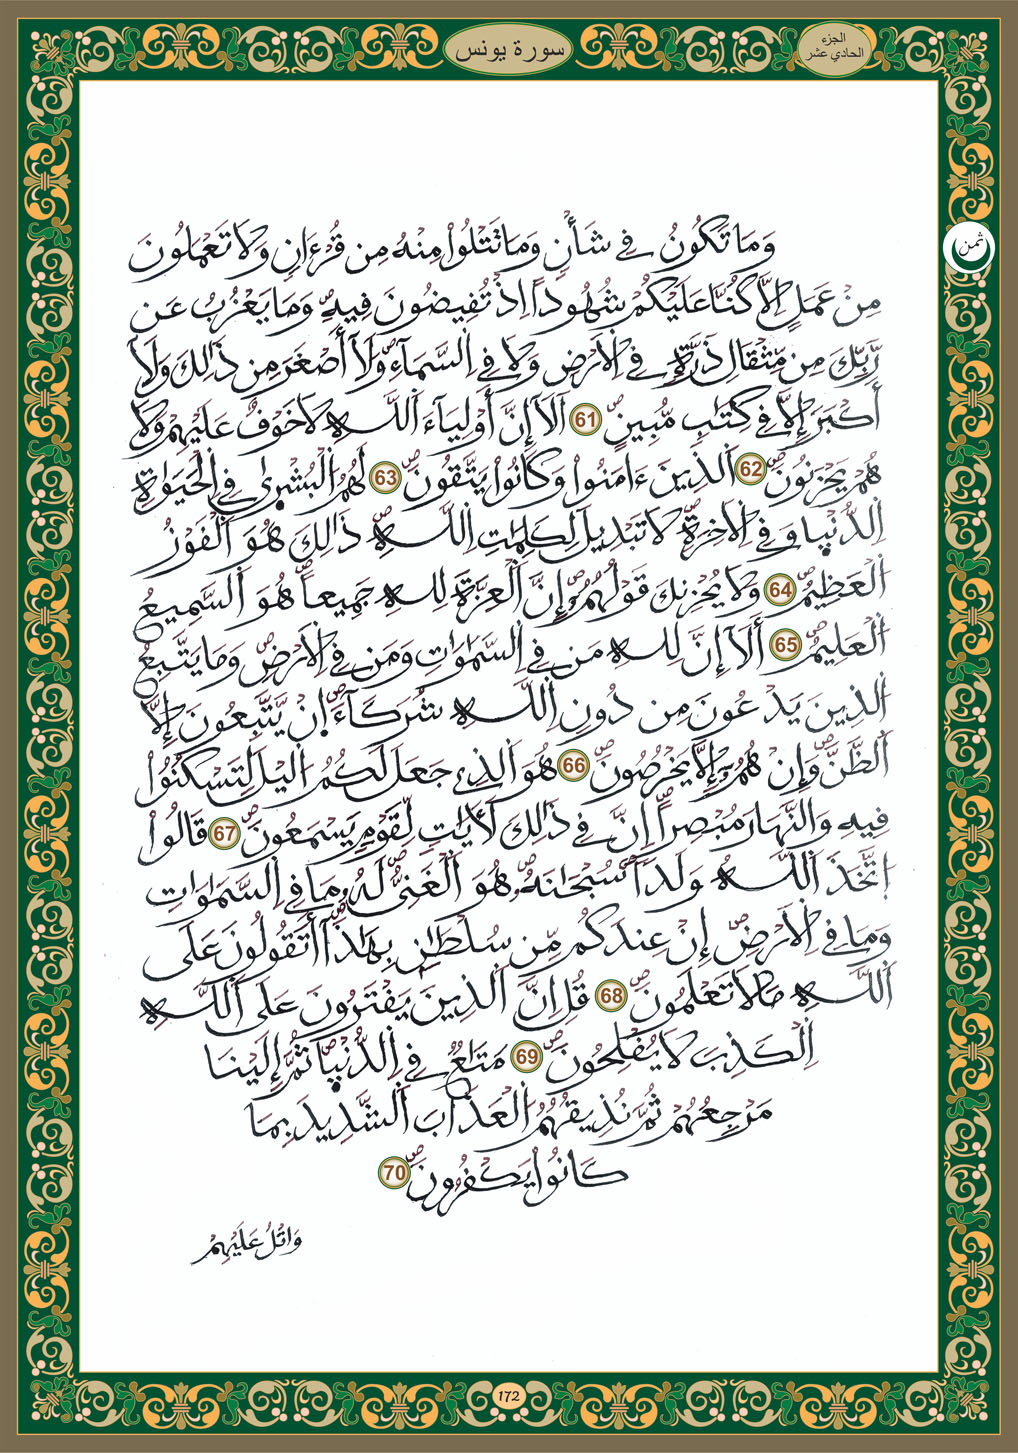 الجزء
الحادي عشر
سورة يونس
ثمن
وَمَا تَكُونُ فِي شَأْنٍ وَمَا تَتْلُواْ مِنْهُ مِن قُرْءَانٍ وَلَا تَعْمَلُونَ
مِنْ عَمَلٍ اِلَّا كُنَّا عَلَيْكُمْ شُهُوداً اِذْ تُفِيضُونَ فِيهِ وَمَا يَعْزُبُ عَن
رَّبِّكَ مِن مِّثْقَالِ ذَرَّةٍ فِي اِلَارْضِ وَلَا فِي اِلسَّمَآءِ وَلَآ أَصْغَرَ مِن ذَٰلِكَ وَلَآ
أَكْبَرَ إِلَّا فِي كِتَٰبٍ مُّبِينٍ 61 اَلَآ إِنَّ أَوْلِيَآءَ اَللَّهِ لَا خَوْفٌ عَلَيْهِمْ وَلَا
هُمْ يَحْزَنُونَ 62 اَلذِينَ ءَامَنُواْ وَكَانُواْ يَتَّقُونَ 63 لَهُمُ اُلْبُشْرٜىٰ فِي اِلْحَيَوٰةِ
اِلدُّنْيٜا وَفِي اِلَاخِرَةِ لَا تَبْدِيلَ لِكَلِمَٰتِ اِللَّهِ ذَٰلِكَ هُوَ اَلْفَوْزُ
اُلْعَظِيمُ 64 وَلَا يُحْزِنكَ قَوْلُهُمُۥٓ إِنَّ اَلْعِزَّةَ لِلهِ جَمِيعاً هُوَ اَلسَّمِيعُ
اُلْعَلِيمُ 65 أَلَآ إِنَّ لِلهِ مَن فِي اِلسَّمَٰوَٰتِ وَمَن فِي اِلَارْضِ وَمَا يَتَّبِعُ
اُلذِينَ يَدْعُونَ مِن دُونِ اِللَّهِ شُرَكَآءَ اِنْ يَّتَّبِعُونَ إِلَّا
اَلظَّنَّ وَإِنْ هُمُۥٓ إِلَّا يَخْرُصُونَ 66 هُوَ اَلذِي جَعَلَ لَكُمُ اُليْلَ لِتَسْكُنُواْ
فِيهِ وَالنَّهَارَ مُبْصِراً اِنَّ فِي ذَٰلِكَ لَأٓيَٰتٍ لِّقَوْمٍ يَسْمَعُونَ 67 قَالُواْ
اُتَّخَذَ اَللَّهُ وَلَداً سُبْحَٰنَهُۥ هُوَ اَلْغَنِيُّ لَهُۥ مَا فِي اِلسَّمَٰوَٰتِ
وَمَا فِي اِلَارْضِ إِنْ عِندَكُم مِّن سُلْطَٰنٍ بِهَٰذَآ أَتَقُولُونَ عَلَى
اَللَّهِ مَا لَا تَعْلَمُونَ 68 قُلِ اِنَّ اَلذِينَ يَفْتَرُونَ عَلَى اَللَّهِ
اِلْكَذِبَ لَا يُفْلِحُونَ 69 مَتَٰعٌ فِي اِلدُّنْيٜا ثُمَّ إِلَيْنَا
مَرْجِعُهُمْ ثُمَّ نُذِيقُهُمُ اُلْعَذَابَ اَلشَّدِيدَ بِمَا
كَانُواْ يَكْفُرُونَ 70
وَاتْلُ عَلَيْهِمْ
172